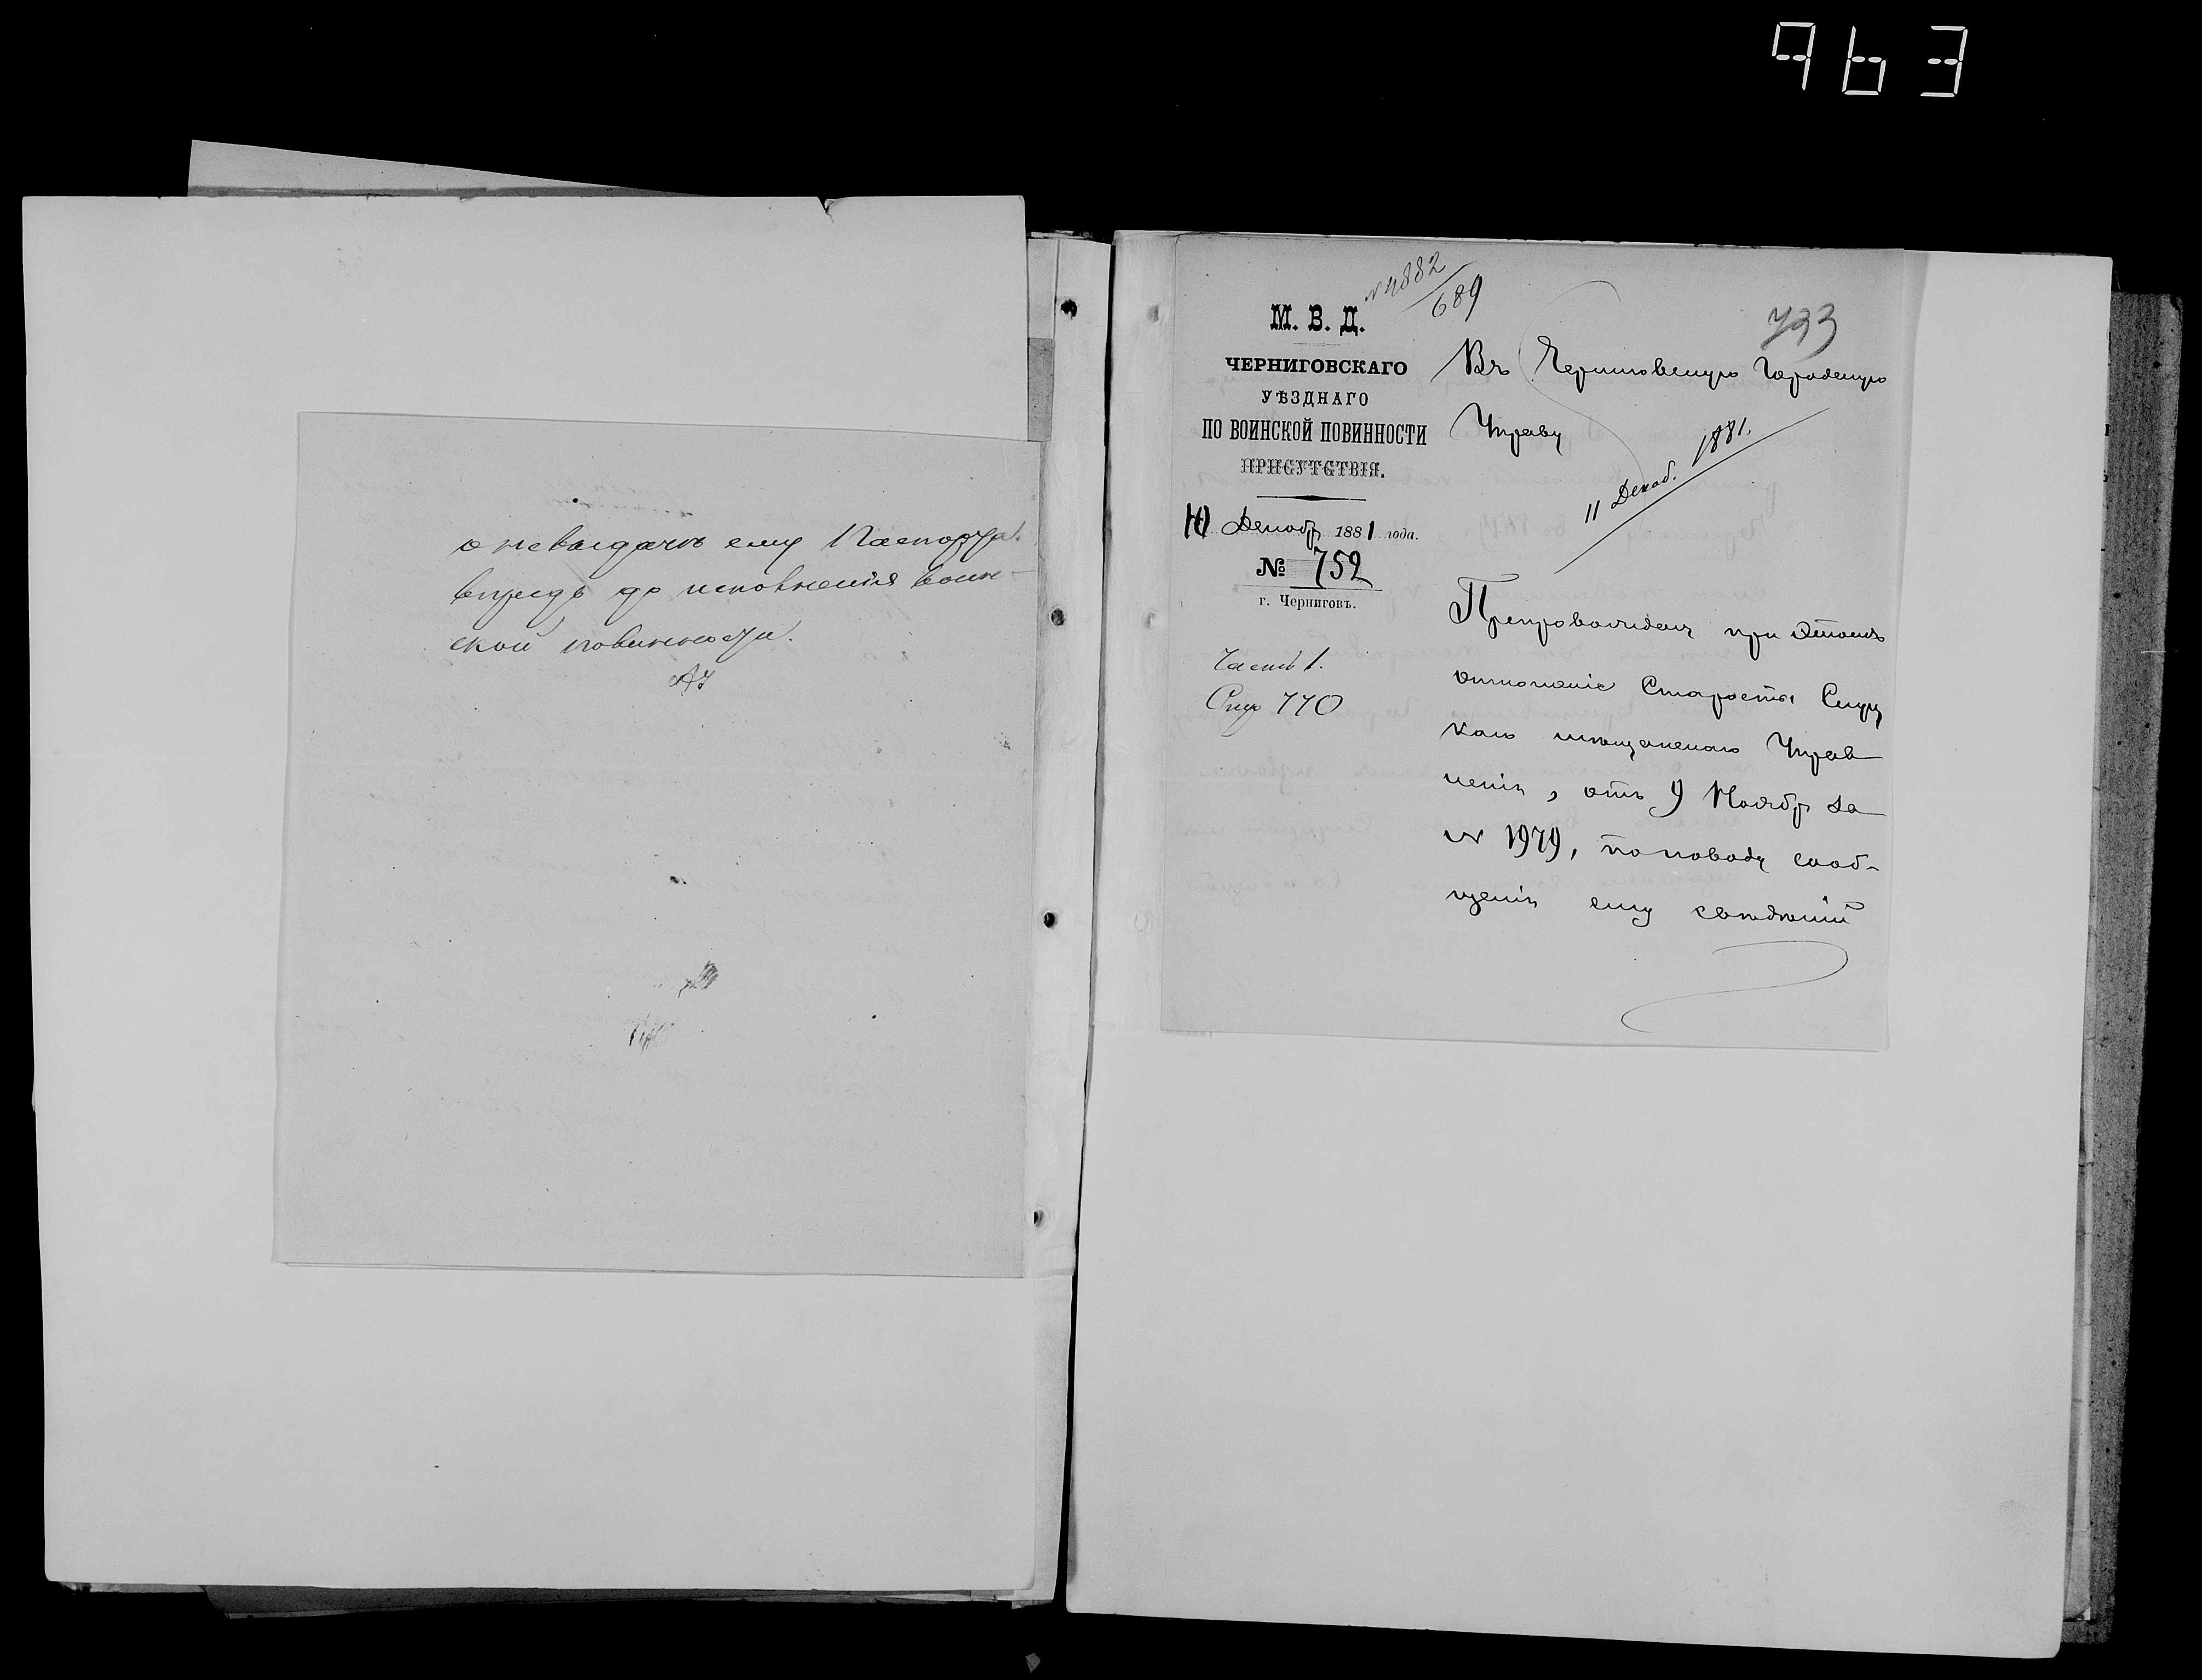 963
о невыдачѣ ему Паспорта
впредь до исполненія воин-
ской повинности.
№ 4882
689
733
М. В. Д.
ЧЕРНИГОВСКАГО
УѢЗДНАГО
ПО ВОИНСКОЙ ПОВИННОСТИ
ПРИСУТСТВІЯ.
10 Декабр 1881 года.
№ 752
г. Черниговъ.
Часть 1.
770
Въ Черниговскую Городскую
Управу
11 Декаб. 1881.
Препровождая при этомъ
отношеніе Старосты Слуц
каго мѣщанскаго Управ
ленія, отъ 9 Ноябр за
№ 1979, по поводу сооб-
щенія ему свѣдѣній